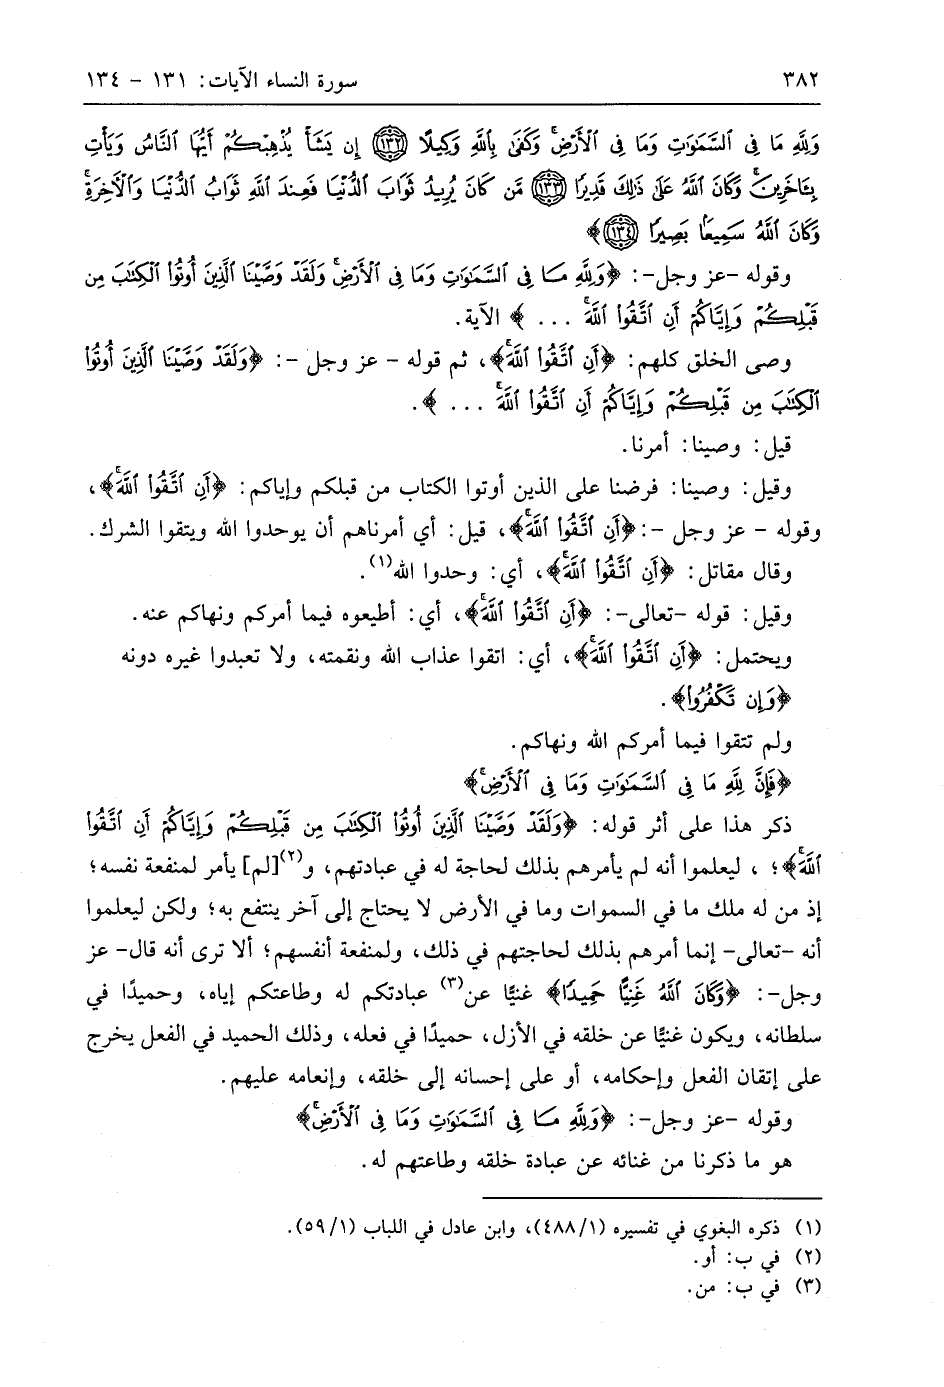 ٣٨٢ سورة النساء الآيات: ١٣١ - ١٣٤
وَلِلَّهِ مَا فِي ٱلسَّمَٰوَٰتِ وَمَا فِي ٱلْأَرْضِۚ وَكَفَىٰ بِٱللَّهِ وَكِيلًا ﴿١٣٢﴾ إِن يَشَأْ يُذْهِبْكُمْ أَيُّهَا ٱلنَّاسُ وَيَأْتِ
بِـَٔاخَرِينَۚ وَكَانَ ٱللَّهُ عَلَىٰ ذَٰلِكَ قَدِيرًا ﴿١٣٣﴾ مَّن كَانَ يُرِيدُ ثَوَابَ ٱلدُّنْيَا فَعِندَ ٱللَّهِ ثَوَابُ ٱلدُّنْيَا وَٱلْأَخِرَةِۚ
وَكَانَ ٱللَّهُ سَمِيعًۢا بَصِيرًا ﴿١٣٤﴾﴾
وقوله -عز وجل-: ﴿وَلِلَّهِ مَا فِي ٱلسَّمَٰوَٰتِ وَمَا فِي ٱلْأَرْضِۗ وَلَقَدْ وَصَّيْنَا ٱلَّذِينَ أُوتُوا۟ ٱلْكِتَٰبَ مِن
قَبْلِكُمْ وَإِيَّاكُمْ أَنِ ٱتَّقُوا۟ ٱللَّهَۚ ... ﴾ الآية.
وصى الخلق كلهم: ﴿أَنِ ٱتَّقُوا۟ ٱللَّهَۚ﴾، ثم قوله - عز وجل -: ﴿وَلَقَدْ وَصَّيْنَا ٱلَّذِينَ أُوتُوا۟
ٱلْكِتَٰبَ مِن قَبْلِكُمْ وَإِيَّاكُمْ أَنِ ٱتَّقُوا۟ ٱللَّهَۚ ... ﴾.
قيل: وصينا: أمرنا.
وقيل: وصينا: فرضنا على الذين أوتوا الكتاب من قبلكم وإياكم: ﴿أَنِ ٱتَّقُوا۟ ٱللَّهَۚ﴾،
وقوله - عز وجل -: ﴿أَنِ ٱتَّقُوا۟ ٱللَّهَۚ﴾، قيل: أي أمرناهم أن يوحدوا الله ويتقوا الشرك.
وقال مقاتل: ﴿أَنِ ٱتَّقُوا۟ ٱللَّهَۚ﴾، أي: وحدوا الله(١).
وقيل: قوله -تعالى-: ﴿أَنِ ٱتَّقُوا۟ ٱللَّهَۚ﴾، أي: أطيعوه فيما أمركم ونهاكم عنه.
ويحتمل: ﴿أَنِ ٱتَّقُوا۟ ٱللَّهَۚ﴾، أي: اتقوا عذاب الله ونقمته، ولا تعبدوا غيره دونه
﴿وَإِن تَكْفُرُوا۟﴾.
ولم تتقوا فيما أمركم الله ونهاكم.
﴿فَإِنَّ لِلَّهِ مَا فِي ٱلسَّمَٰوَٰتِ وَمَا فِي ٱلْأَرْضِۚ﴾
ذكر هذا على أثر قوله: ﴿وَلَقَدْ وَصَّيْنَا ٱلَّذِينَ أُوتُوا۟ ٱلْكِتَٰبَ مِن قَبْلِكُمْ وَإِيَّاكُمْ أَنِ ٱتَّقُوا۟
ٱللَّهَۚ﴾؛ ، ليعلموا أنه لم يأمرهم بذلك لحاجة له في عبادتهم، و(٢)[لم] يأمر لمنفعة نفسه؛
إذ من له ملك ما في السموات وما في الأرض لا يحتاج إلى آخر ينتفع به؛ ولكن ليعلموا
أنه -تعالى- إنما أمرهم بذلك لحاجتهم في ذلك، ولمنفعة أنفسهم؛ ألا ترى أنه قال- عز
وجل-: ﴿وَكَانَ ٱللَّهُ غَنِيًّا حَمِيدًا﴾ غنيًّا عن(٣) عبادتكم له وطاعتكم إياه، وحميدًا في
سلطانه، ويكون غنيًّا عن خلقه في الأزل، حميدًا في فعله، وذلك الحميد في الفعل يخرج
على إتقان الفعل وإحكامه، أو على إحسانه إلى خلقه، وإنعامه عليهم.
وقوله -عز وجل-: ﴿وَلِلَّهِ مَا فِي ٱلسَّمَٰوَٰتِ وَمَا فِي ٱلْأَرْضِۚ﴾
هو ما ذكرنا من غنائه عن عبادة خلقه وطاعتهم له.
(١) ذكره البغوي في تفسيره (٤٨٨/١)، وابن عادل في اللباب (٥٩/١).
(٢) في ب: أو.
(٣) في ب: من.